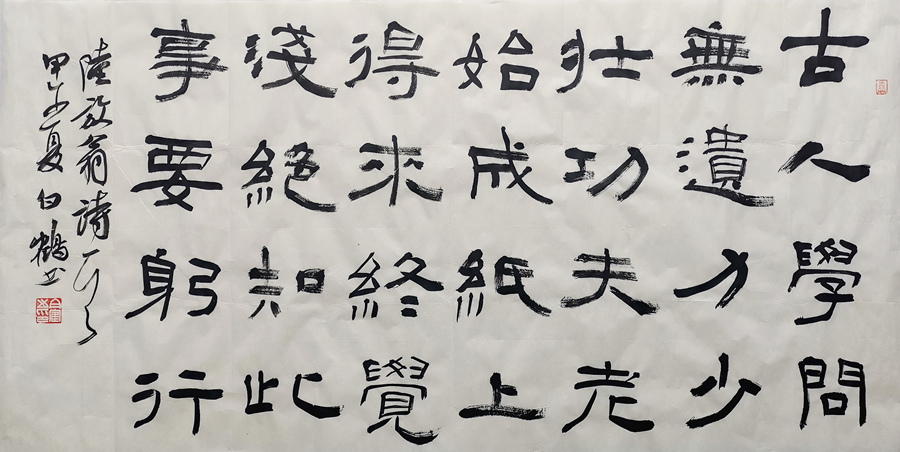 古人學問
無遺力少
壯功夫老
始成紙上
得來終覺
淺絕知此
事要躬行
陸放翁詩一首
甲午夏白鶴書